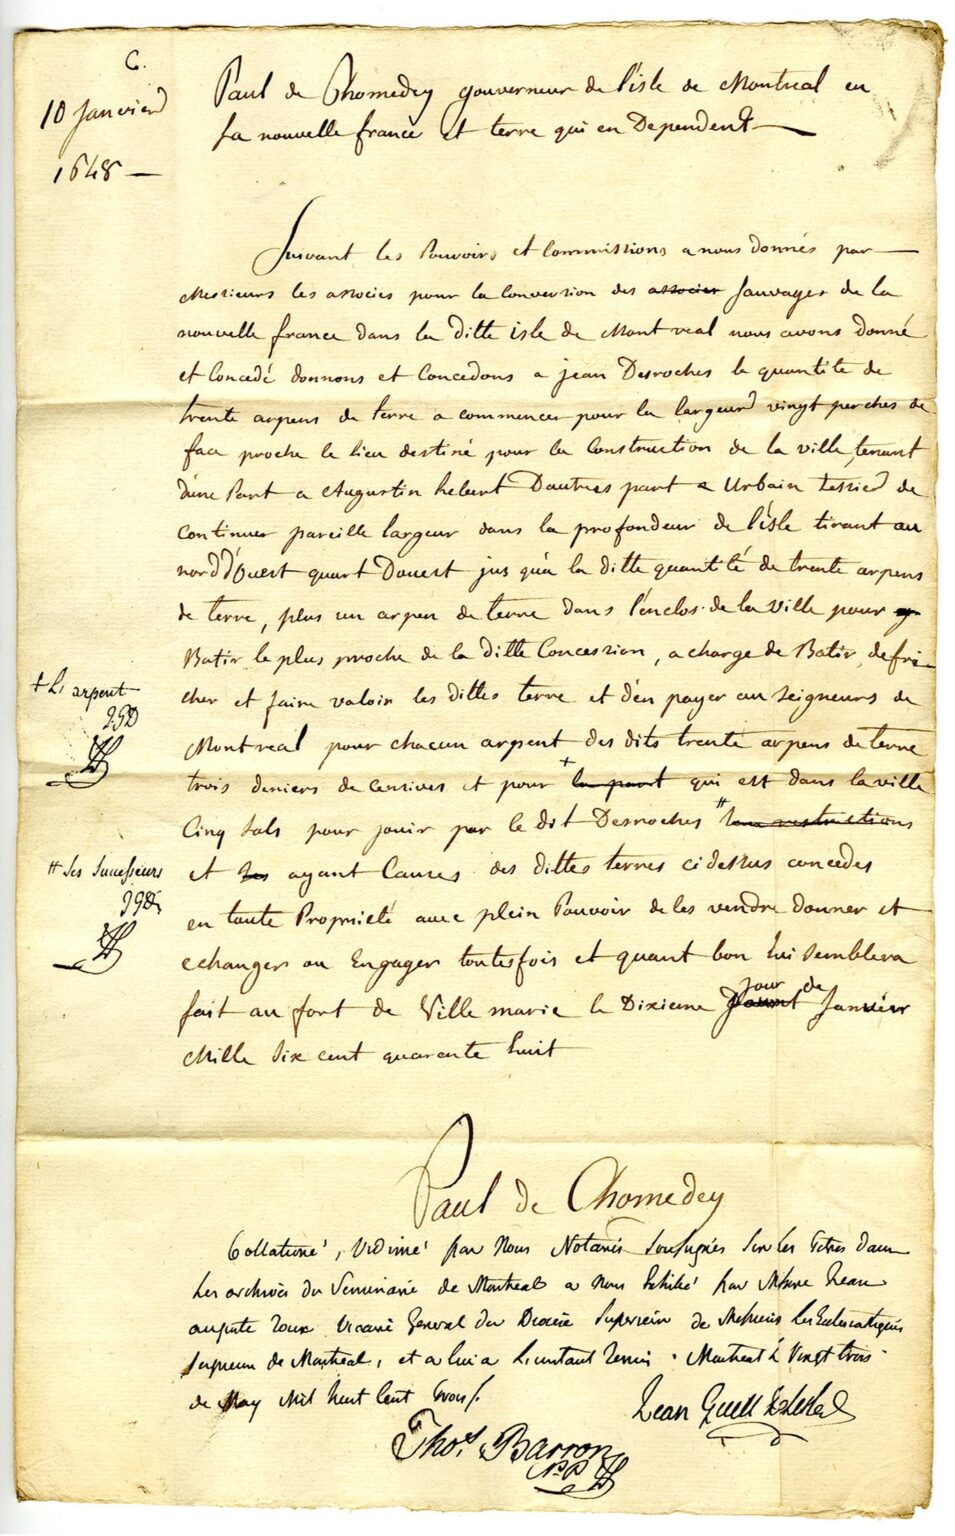 C.
10 Janvier
1648 —
Paul de Chomedey gouverneur de l'isle de Montreal en
la nouvelle france et terre qui en Dependent —
Suivant les Pouvoirs et Commissions a nous donnés par —
Messieurs les associés pour la Conversion des associer sauvages de la
nouvelle france dans la ditte isle de Montreal nous avons donné
et Concedé donnons et Concedons a jean Desroches la quantité de
trente arpens de terre a commencer pour la largeur vingt perches de
face proche le lieu destiné pour la Construction de la ville, tenant
d'une Part a Augustin hebert D'autres part a Urbain tessier de
continuer pareille largeur dans la profondeur de l'isle tirant au
nord d'Ouest quart Douest jus qu'a la ditte quantité de trente arpens
de terre, plus un arpen de terre dans l'enclos de la Ville pour y
Batir le plus proche de la ditte Concession, a charge de Batir, defri-
cher et faire valoir les dittes terre et d'en payer au Seigneurs de
+ L'arpent
Montreal pour chacun arpent des dits trente arpens de terre
trois deniers de censives et pour + la part qui est dans la ville
Cinq sols pour jouir par le dit Desroches # 
# Ses Successeurs
et ses ayant Causes des dittes terres ci dessus concedes
en toute Propriété avec plein Pouvoir de les vendre donner et
echanger ou Engager toutesfois et quant bon lui semblera
fait au fort de Ville marie le Dixieme jour de Janvier
Mille Six cent quarante huit
Paul de Chomedey
Collationé, Vidimé par Nous Notaires Soussignés Sur les dans
Les archives du Seminaire de Montreal a Nous Exhibé par Jean
auguste Roux Vicaire General du Diocese Superieur de Messieurs Les Eclesiastiques
Seigneurs de Montreal, et a lui a L'instant Remis. Montreal le Vingt trois
de May Mil huit Cent trois/.
Jean Guill
Thos. Barron
N.P.